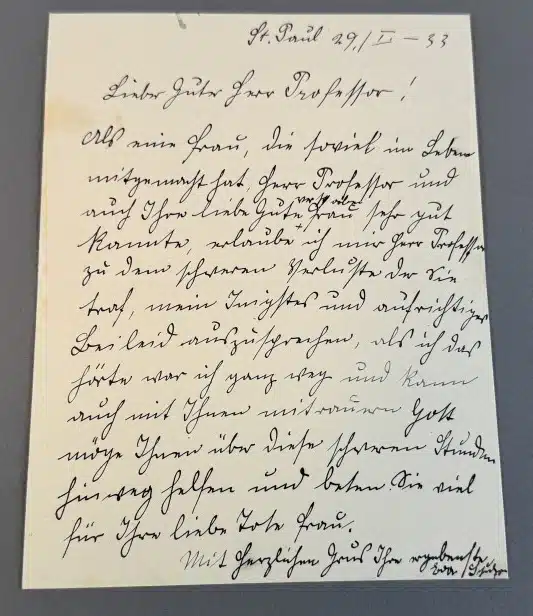 St. Paul 29./I – 33
Lieber Guter Herr Professor!
Als eine Frau, die soviel im Leben
mitgemacht hat, Herr Professor und
auch Ihre liebe Gute Frau sehr gut
kannte, erlaube ich mir Herr Professor
zu dem schweren Verluste der Sie
traf, mein Inigstes und aufrichtiges
Beileid auszusprechen, als ich das
hörte war ich ganz weg und kann
auch mit Ihnen mitrauern Gott
möge Ihnen über diese schweren Stunden
hinweg helfen und beten Sie viel
für Ihre liebe Tote Frau.
Mit Herzlichen Grus Ihre ergebenste